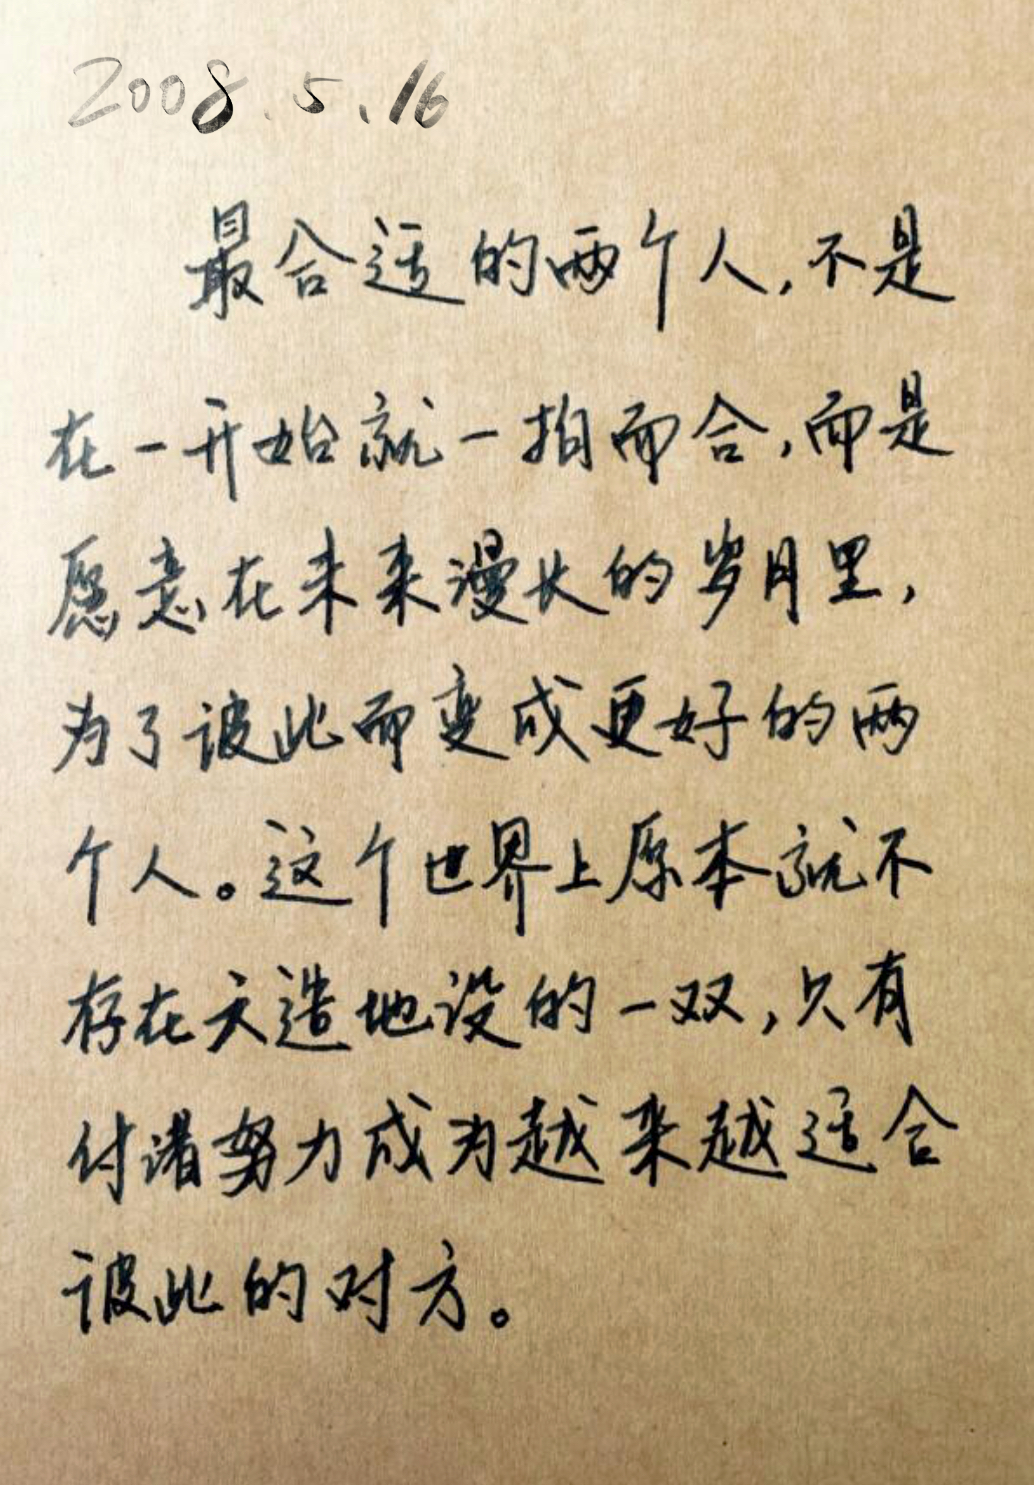 2008.5.16
最合适的两个人,不是
在一开始就一拍而合,而是
愿意在未来漫长的岁月里,
为了彼此而变成更好的两
个人。这个世界上原本就不
存在天造地设的一双,只有
付诸努力成为越来越适合
彼此的对方。